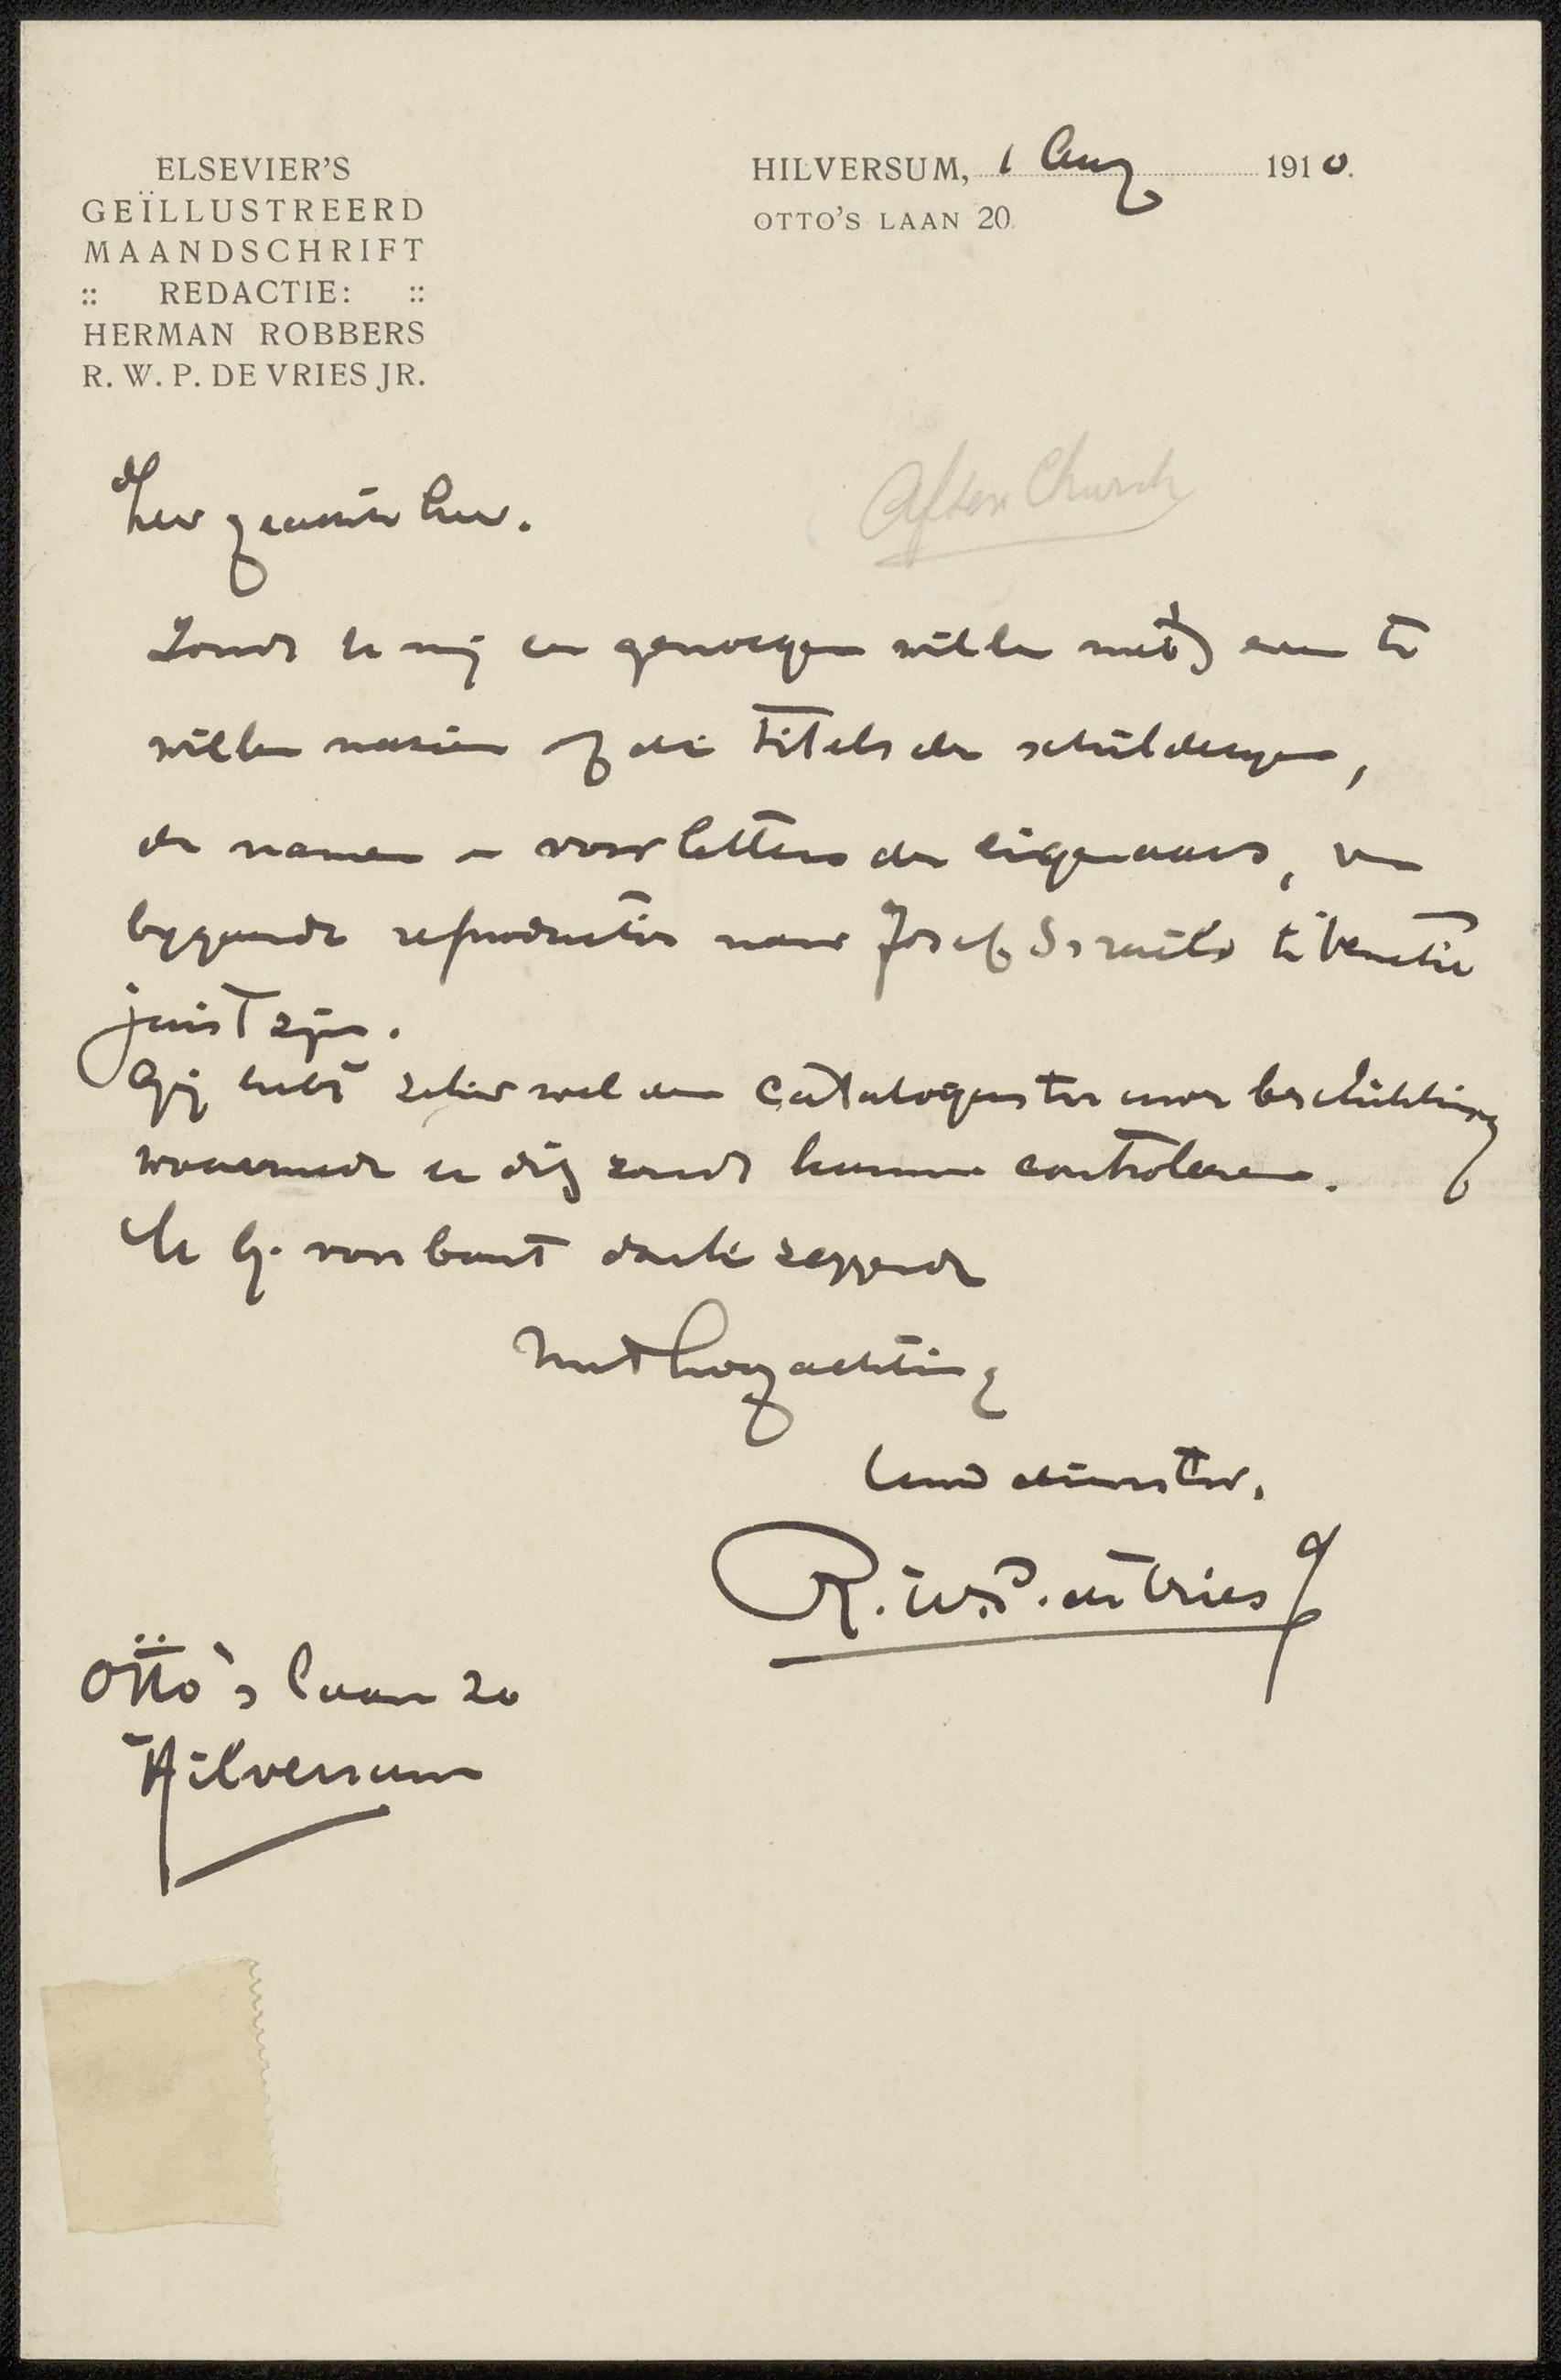 ELSEVIER'S
GEÏLLUSTREERD
MAANDSCHRIFT
:: REDACTIE: ::
HERMAN ROBBERS
R. W. P. DE VRIES JR.
HILVERSUM, 1 Aug 1910.
OTTO'S LAAN 20.
After Church
Zeer geachte heer.
Zoudt U mij een genoegen willen even te
willen nazien of de titels der schilderijen,
de namen en voorletters der eigenaars, van
bijgaande reproducties naar Jozef Israëls te Venetië
juist zijn.
Gij hebt zeker wel een catalogus ter uwer beschikking
waarmede U dit zoudt kunnen controleeren.
U bij voorbaat dank zeggende
Met hoogachting
Uwd dienstw.
R. W. P. de Vries Jr
Otto's laan 20
Hilversum